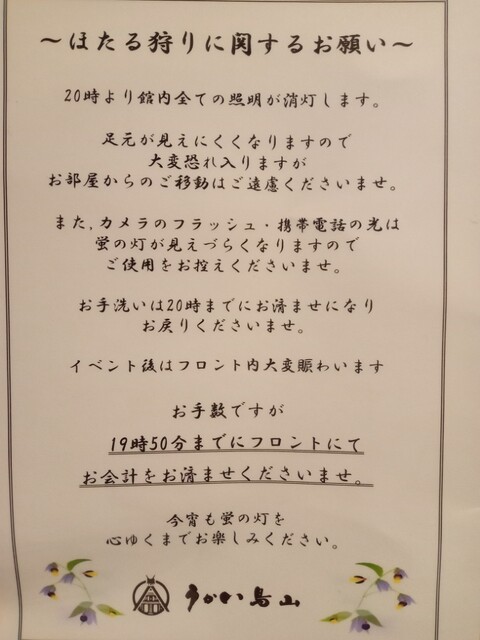 ～ほたる狩りに関するお願い～
20時より館内全ての照明が消灯します。
足元が見えにくくなりますので
大変恐れ入りますが
お部屋からのご移動はご遠慮くださいませ。
また,カメラのフラッシュ・携帯電話の光は
蛍の灯が見えづらくなりますので
ご使用をお控えくださいませ。
お手洗いは20時までにお済ませになり
お戻りくださいませ。
イベント後はフロント内大変賑わいます
お手数ですが
19時50分までにフロントにて
お会計をお済ませくださいませ。
今宵も蛍の灯を
心ゆくまでお楽しみください。
うかい鳥山